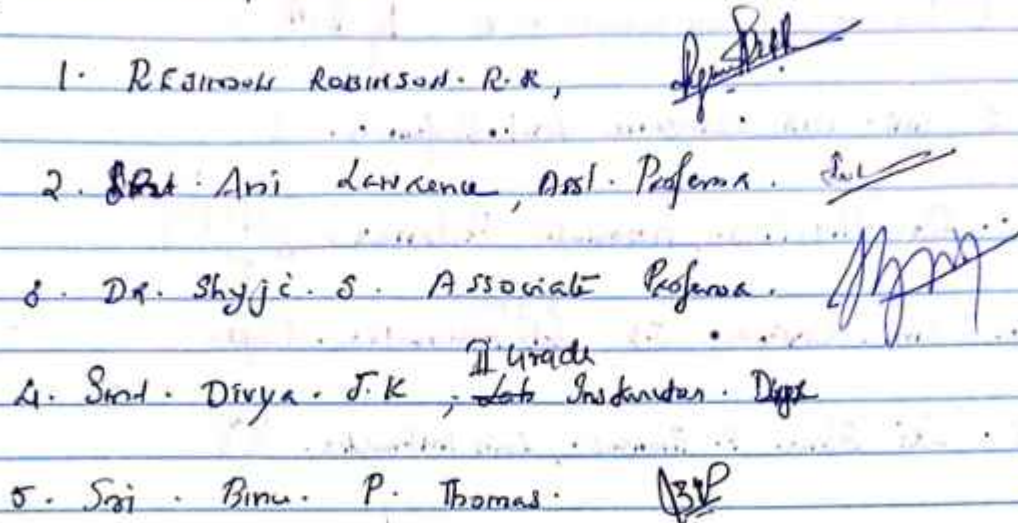 1. REJINSON ROBINSON. R.R,
2. Smt. Ani Lawrence, Asst. Professor.
3. DR. Shyji. S. Associate Professor.
II Grade
4. Smt. Divya. J.K, Instructor.
5. Sri. Binu. P. Thomas.